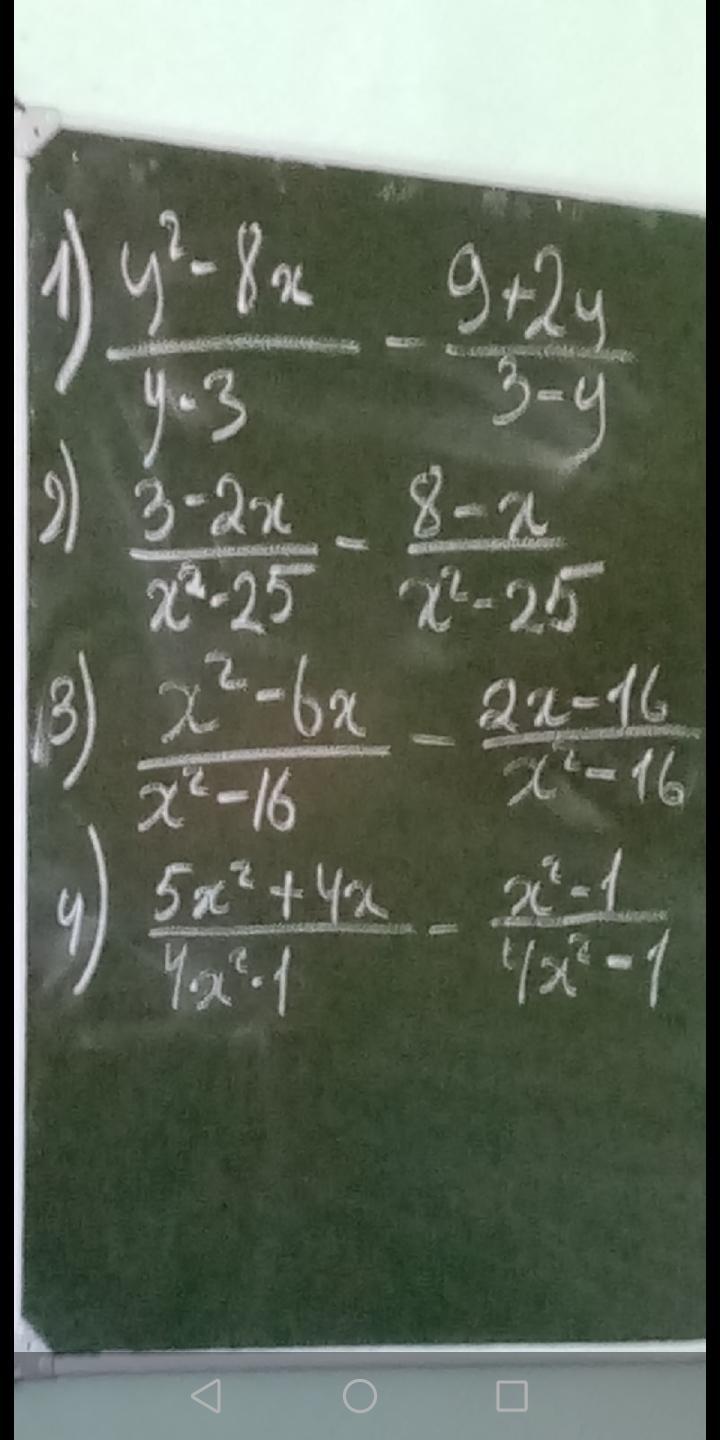 1) (y² - 8x)/(y - 3) - (9 + 2y)/(3 - y)
2) (3 - 2x)/(x² - 25) - (8 - x)/(x² - 25)
3) (x² - 6x)/(x² - 16) - (2x - 16)/(x² - 16)
4) (5x² + 4x)/(4x² - 1) - (x² - 1)/(4x² - 1)